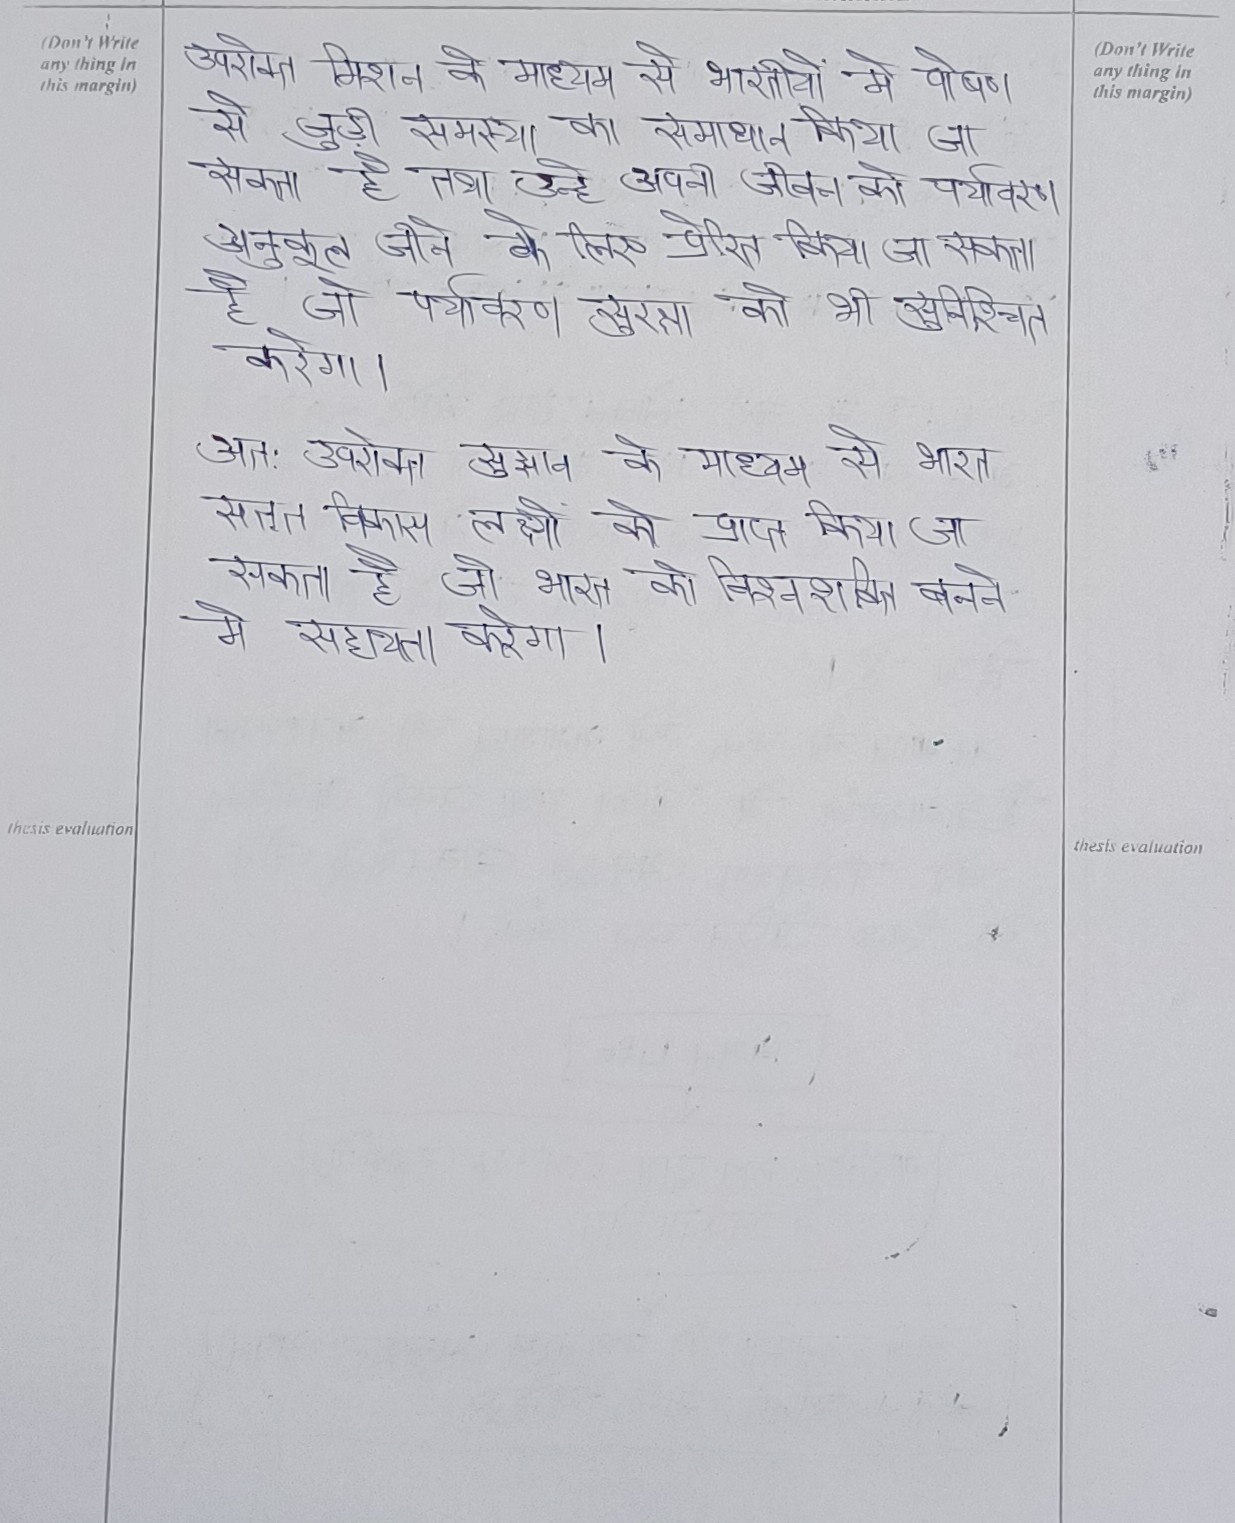 (Don't Write
any thing in
this margin)
(Don't Write
any thing in
this margin)
उपरोक्त मिशन के माध्यम से भारतीयों मे पोषण
से जुड़ी समस्या का समाधान किया जा
सकता है तथा उन्हे अपनी जीवन को पर्यावरण
अनुकूल जीने के लिए प्रेरित किया जा सकता
है जो पर्यावरण सुरक्षा को भी सुनिश्चित
करेगा।
अतः उपरोक्त सुझाव के माध्यम से भारत
सतत विकास लक्ष्यों को प्राप्त किया जा
सकता है जो भारत को विश्वशक्ति बनने
मे सहायता करेगा।
thesis evaluation
thesis evaluation